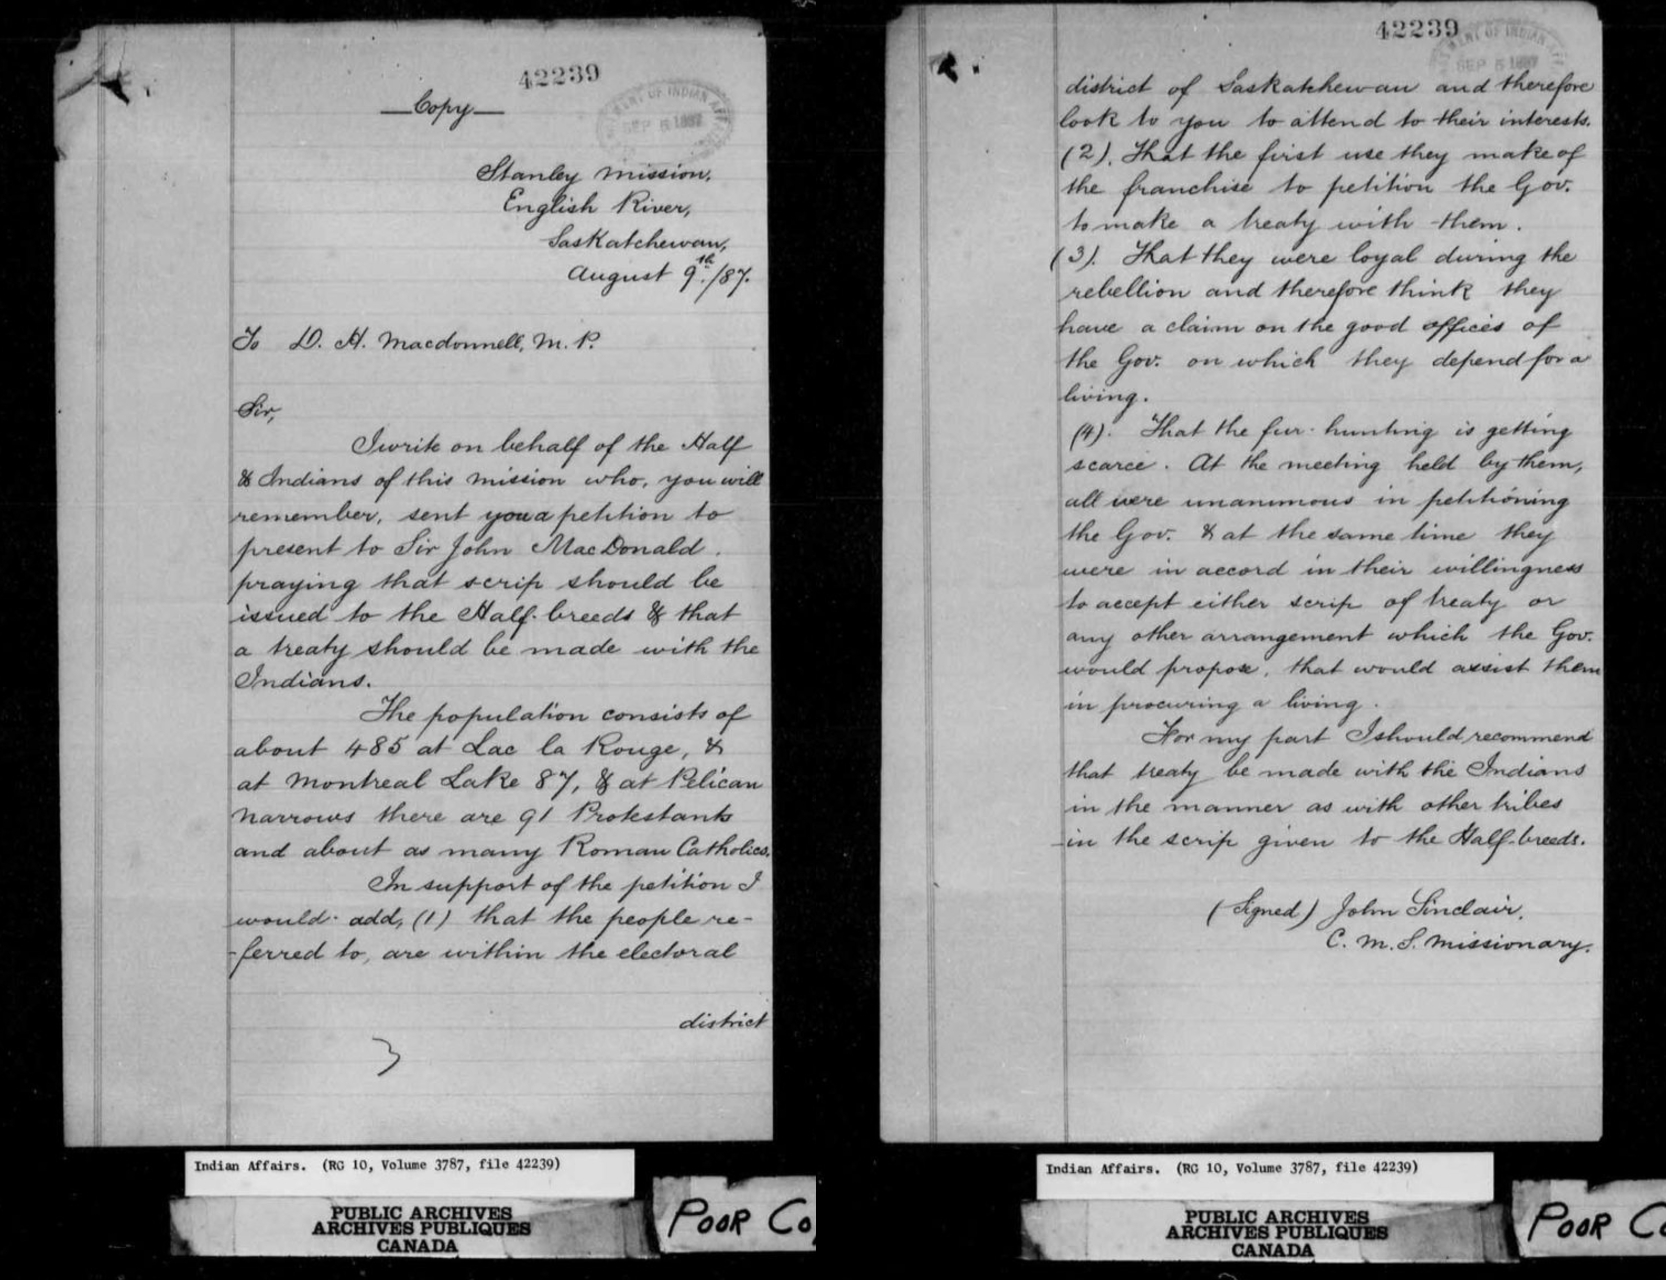 42239
Copy
DEPARTMENT OF INDIAN AFFAIRS
SEP 5 1887
Stanley Mission,
English River,
Saskatchewan,
August 9th./87.
To D. H. Macdonnell, M. P.
Sir,
I write on behalf of the Half
& Indians of this mission who, you will
remember, sent you a petition to
present to Sir John MacDonald.
praying that scrip should be
issued to the Half-breeds & that
a treaty should be made with the
Indians.
The population consists of
about 485 at Lac la Rouge, &
at Montreal Lake 87, & at Pelican
Narrows there are 91 Protestants
and about as many Roman Catholics.
In support of the petition I
would add, (1) that the people re-
-ferred to, are within the electoral
district
3
Indian Affairs. (RG 10, Volume 3787, file 42239)
PUBLIC ARCHIVES
ARCHIVES PUBLIQUES
CANADA
POOR CO
42239
SEP 5 1887
district of Saskatchewan and therefore
look to you to attend to their interests.
(2). That the first use they make of
the franchise to petition the Gov.
to make a treaty with them.
(3). That they were loyal during the
rebellion and therefore think they
have a claim on the good offices of
the Gov. on which they depend for a
living.
(4). That the fur-hunting is getting
scarce. At the meeting held by them,
all were unanimous in petitioning
the Gov. & at the same time they
were in accord in their willingness
to accept either scrip of treaty or
any other arrangement which the Gov.
would propose, that would assist them
in procuring a living.
For my part I should recommend
that treaty be made with the Indians
in the manner as with other tribes
in the scrip given to the Half-breeds.
(Signed) John Sinclair.
C. M. S. Missionary.
Indian Affairs. (RG 10, Volume 3787, file 42239)
PUBLIC ARCHIVES
ARCHIVES PUBLIQUES
CANADA
POOR CO